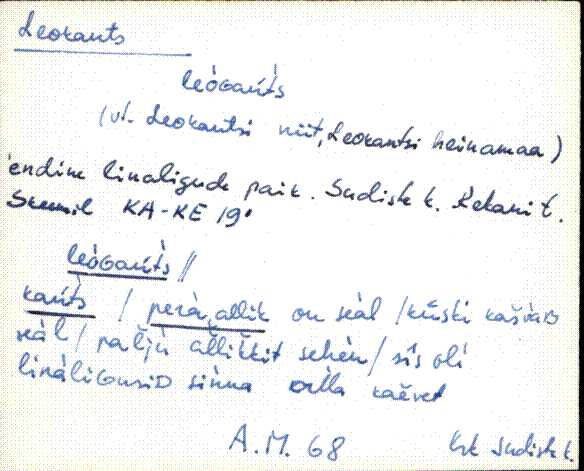 Leokants
leòGaǹts
(vt. Leokantsi niit, Leokantsi heinamaa)
endine linaligude paik. Sudiste k. Kekani t.
KA-KE 19.
leòGaǹts //
kaǹts / perà, allik on seàl / kūski kašvaB
seàl / palju àllikkit sehèn / sîs oli
linàliGusiD sinna olla kaèvet
A.M. 68 Krk Sudiste k.